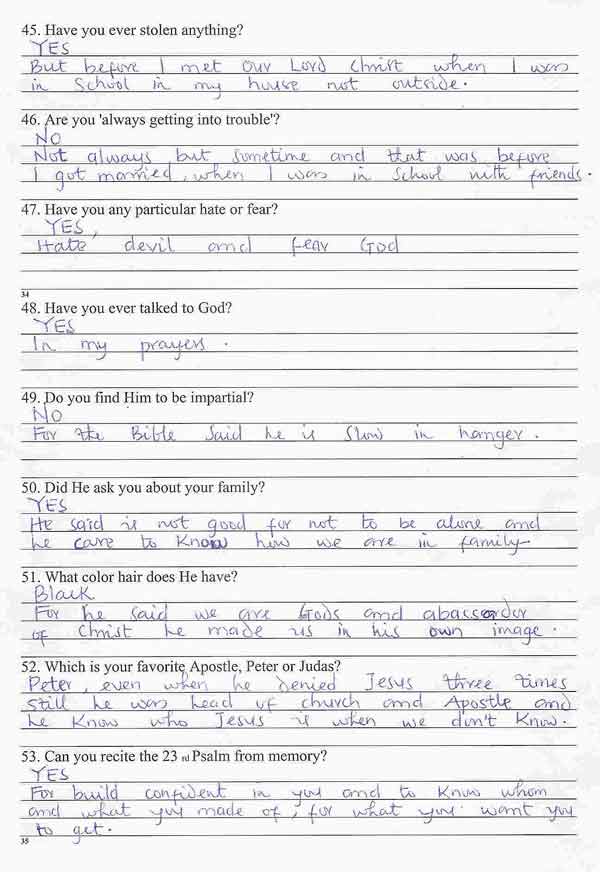 45. Have you ever stolen anything?
YES
But before I met our Lord Christ when I was
in School in my house not outside.
46. Are you 'always getting into trouble'?
NO
Not always but sometime and that was before
I got married, when I was in School with friends.
47. Have you any particular hate or fear?
YES,
Hate devil and fear God
34
48. Have you ever talked to God?
YES
In my prayers.
49. Do you find Him to be impartial?
NO
For the Bible said he is slow in hanger.
50. Did He ask you about your family?
YES
He said is not good for not to be alone and
he care to know how we are in family
51. What color hair does He have?
Black
For he said we are Gods and abassordor
of Christ he made us in his own image.
52. Which is your favorite Apostle, Peter or Judas?
Peter, even when he denied Jesus three times
still he was head of church and Apostle and
he know who Jesus is when we don't know.
53. Can you recite the 23 rd Psalm from memory?
YES
For build confident in you and to know whom
and what you made of, for what you want you
to get.
35